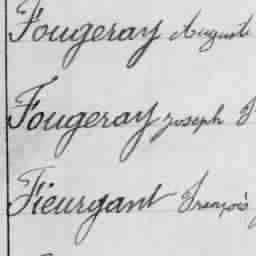 Fougeray Auguste
Fougeray Joseph
Fieurgant François